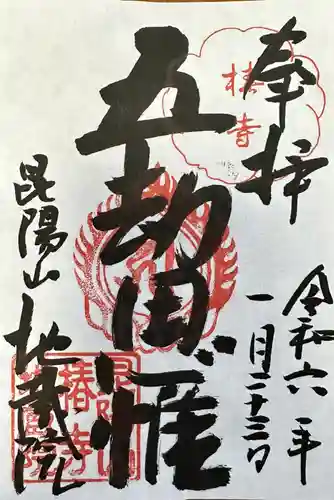 奉拝
椿寺
令和六年
一月二十三日
五劫思惟
昆陽山 地蔵院
昆陽山
椿寺
地蔵院